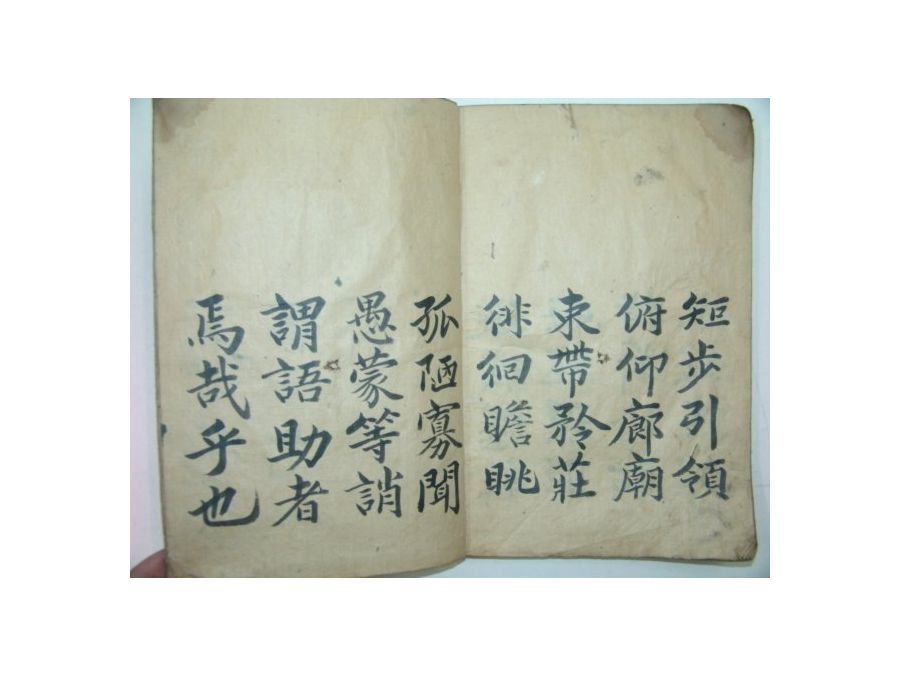 矩步引領
俯仰廊廟
束帶矜莊
徘徊瞻眺
孤陋寡聞
愚蒙等誚
謂語助者
焉哉乎也